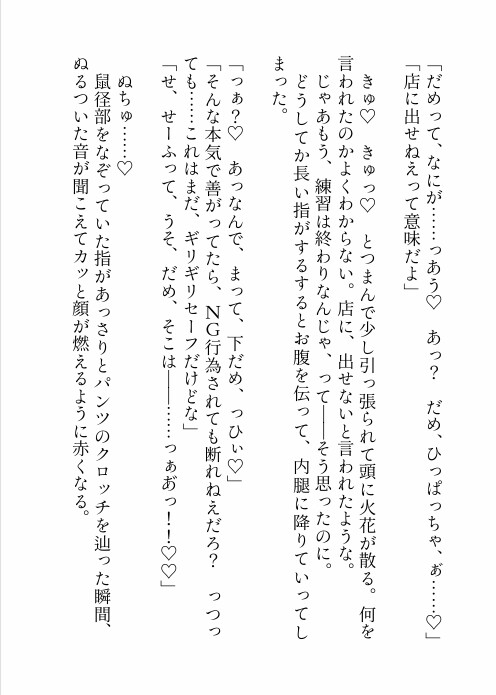 「だめって、なにが……っあう♡　あっ？　だめ、ひっぱっちゃ、ぁ゛……♡」
「店に出せねえって意味だよ」
　きゅ♡　きゅっ♡　とつまんで少し引っ張られて頭に火花が散る。何を
言われたのかよくわからない。店に、出せないと言われたような。
　じゃあもう、練習は終わりなんじゃ、って――そう思ったのに。
　どうしてか長い指がするするとお腹を伝って、内腿に降りていってし
まった。
「っぁ？♡　あっなんで、まって、下だめ、っひぃ♡」
「そんな本気で善がってたら、ＮＧ行為されても断れねえだろ？　っつっ
ても……これはまだ、ギリギリセーフだけどな」
「せ、せーふって、うそ、だめ、そこは――……っぁあ゛っ！！♡♡」
　ぬちゅ……♡
　鼠径部をなぞっていた指があっさりとパンツのクロッチを辿った瞬間、
ぬるついた音が聞こえてカッと顔が燃えるように赤くなる。